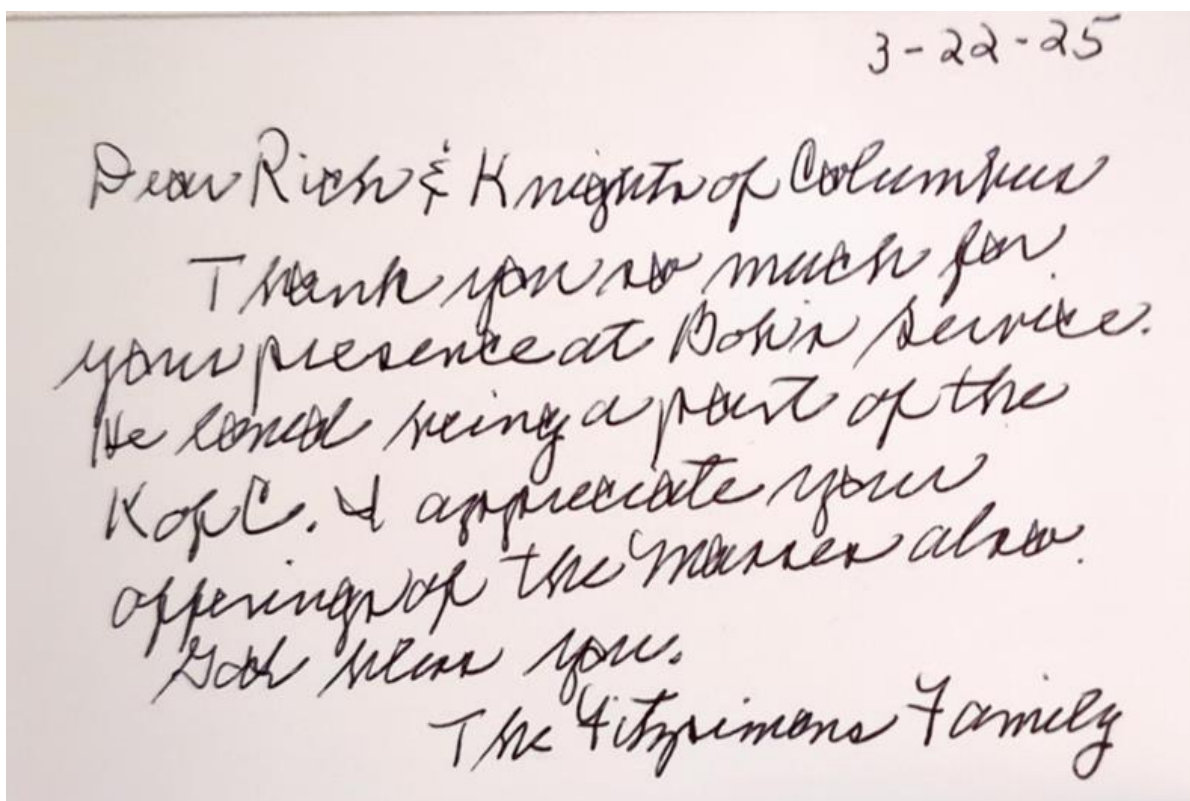 3-22-25
Dear Rich & Knights of Columbus
Thank you so much for
your presence at Bob's service.
He loved being a part of the
K of C. I appreciate your
offerings of the Masses also.
God bless you.
The Fitzsimons Family